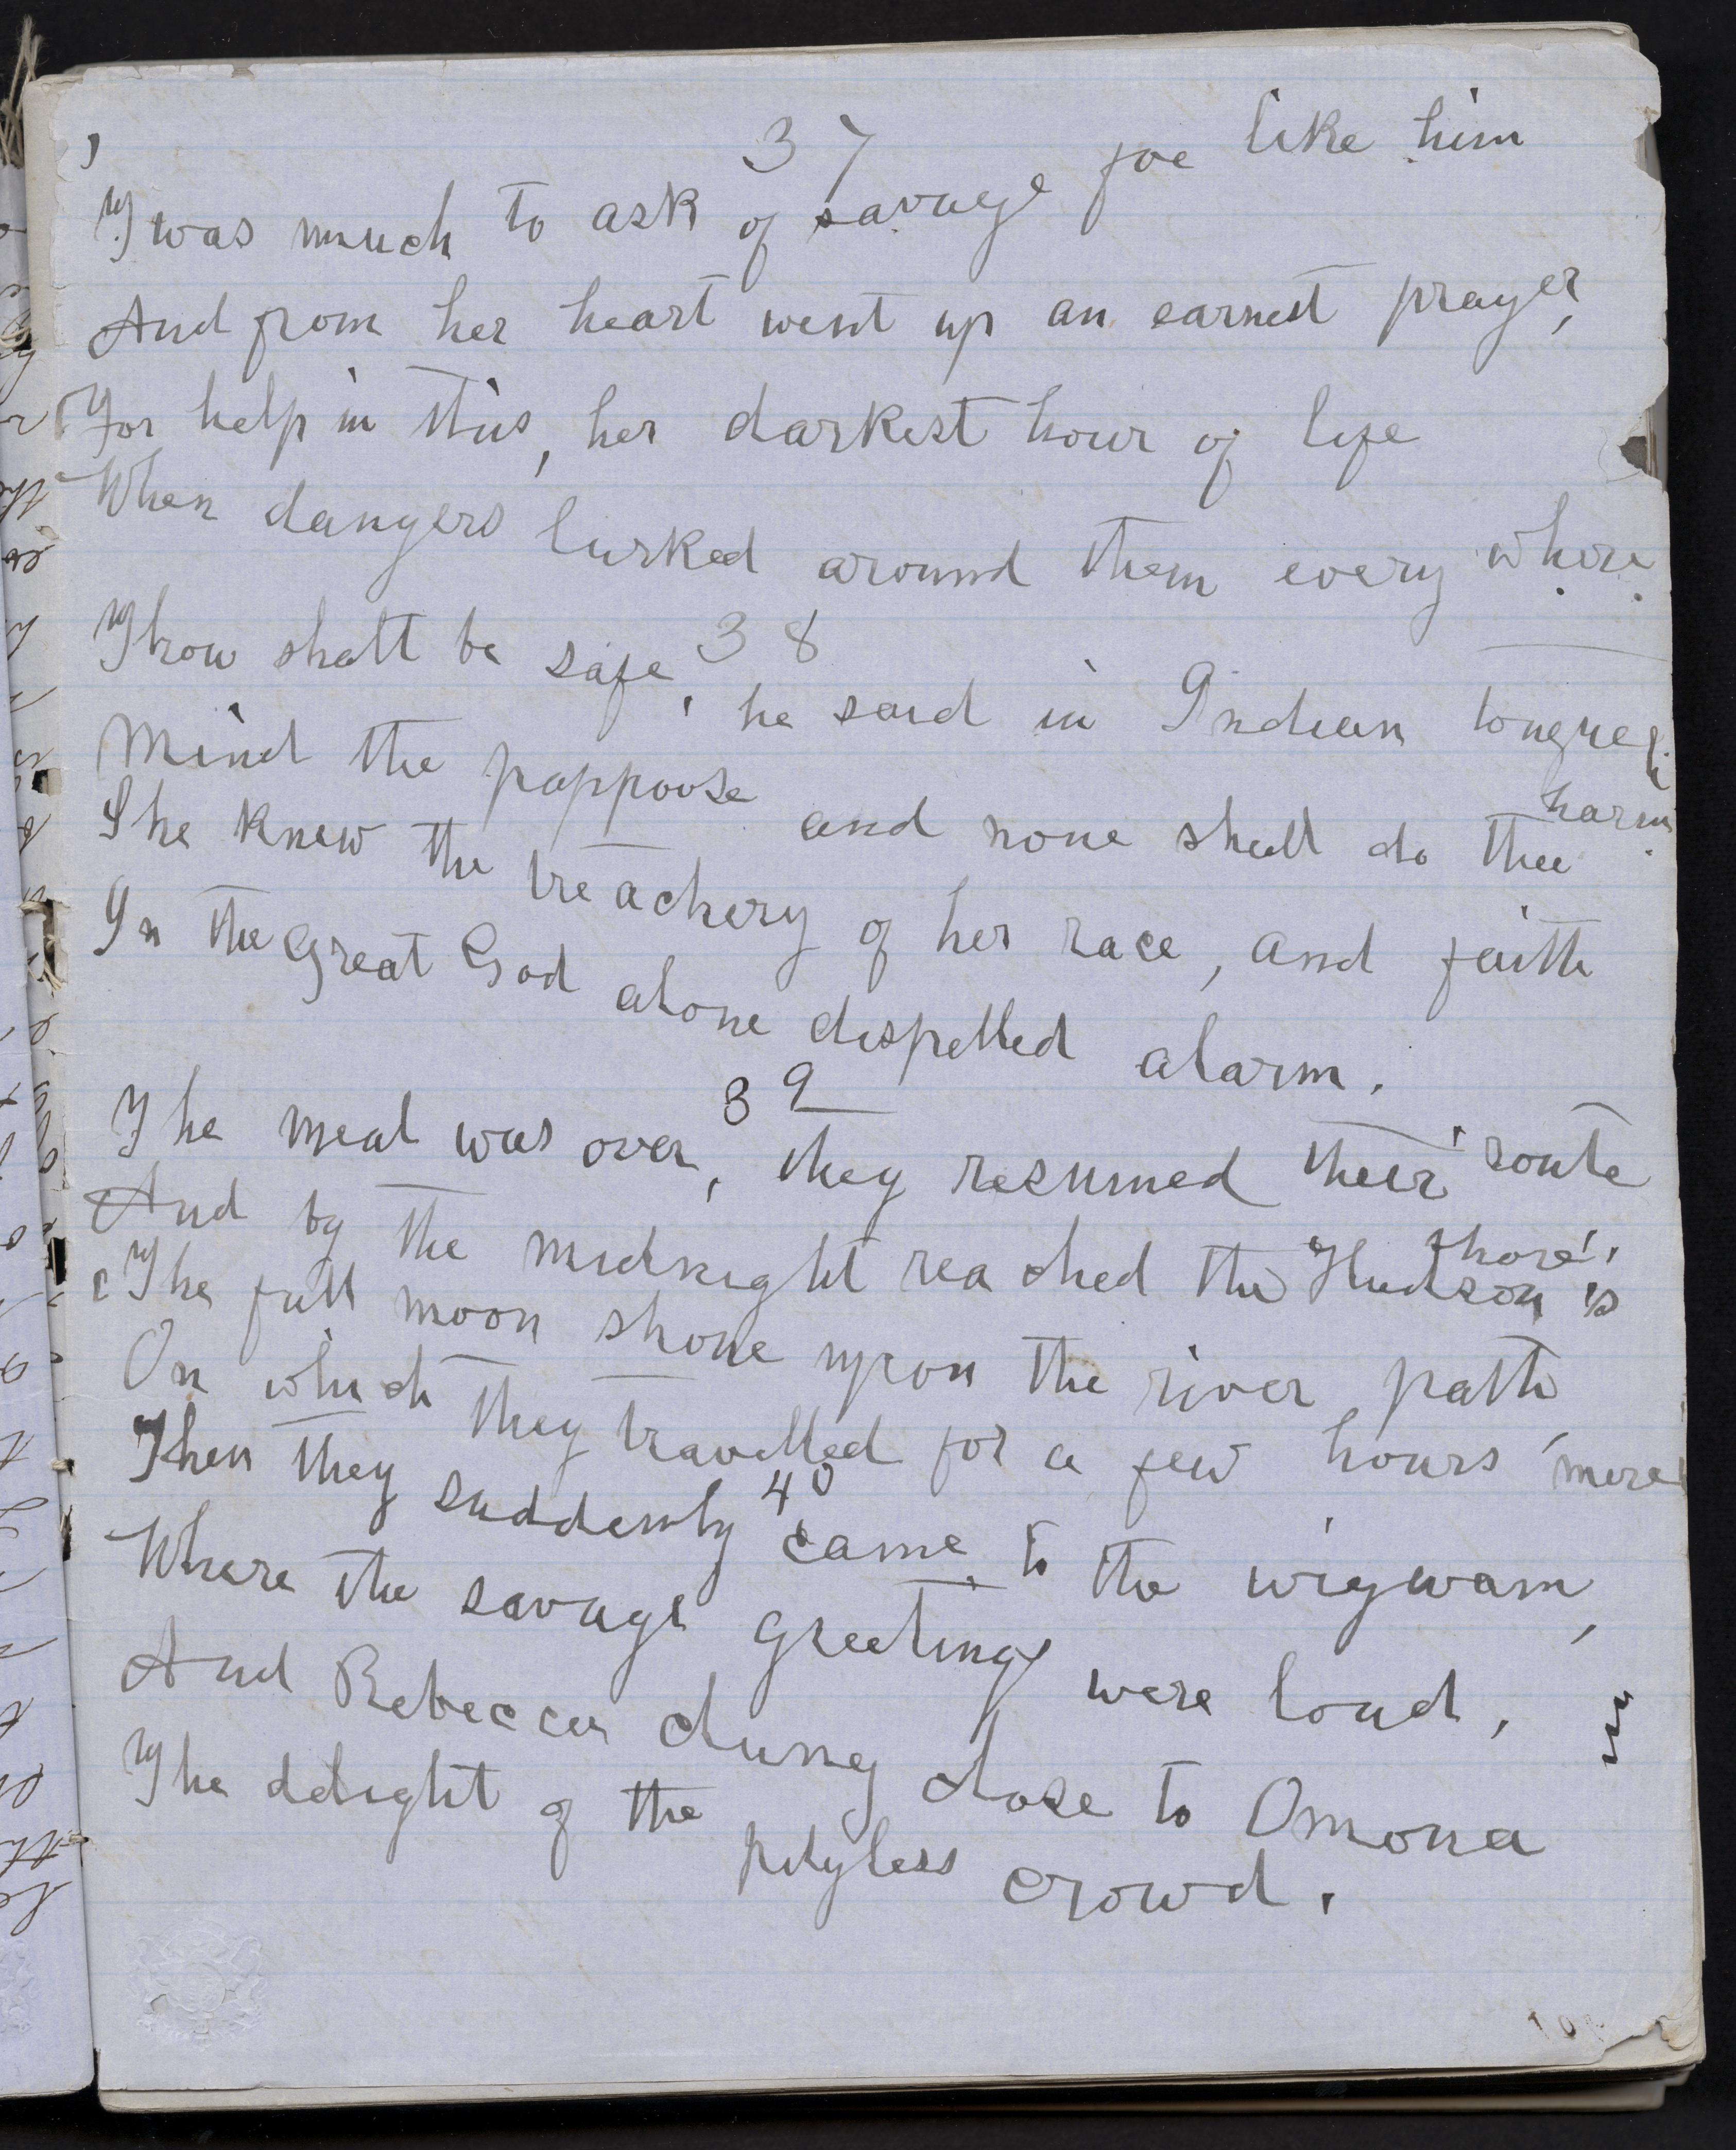 37
'Twas much to ask of savage foe like him
And from her heart went up an earnest prayer,
For help in this, her darkest hour of life
When dangers lurked around them every where.
38
Thou shalt be safe, he said in Indian tongue,
Mind the pappoose and none shall do thee harm.
She knew the treachery of her race, and faith
In the Great God alone dispelled alarm.
39
The meal was over, they resumed their route
And by the midnight reached the Hudson's shore,
The full moon shone upon the river path
On which they travelled for a few hours more
40
Then they suddenly came to the wigwam,
Where the savage greetings were loud,
And Rebecca clung close to Omona
The delight of the pityless crowd.